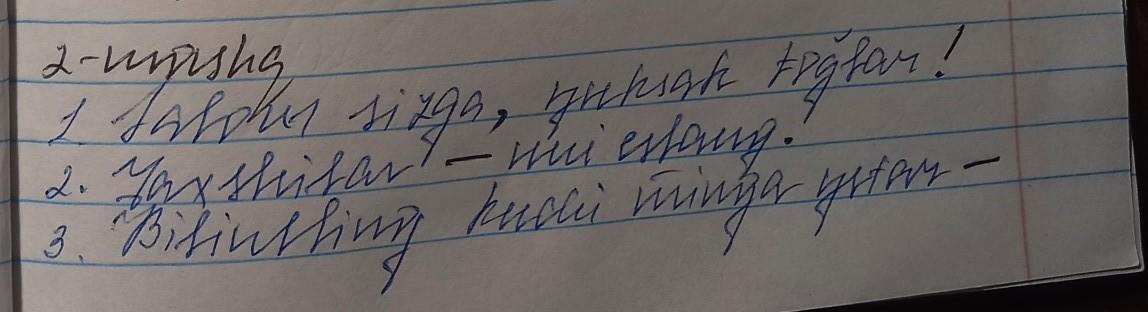 2-mashq
1. Salom sizga, yuksak tog'lar!
2. Yaxshilar - ni eslang.
3. Bilimning kuchi minga yetar -